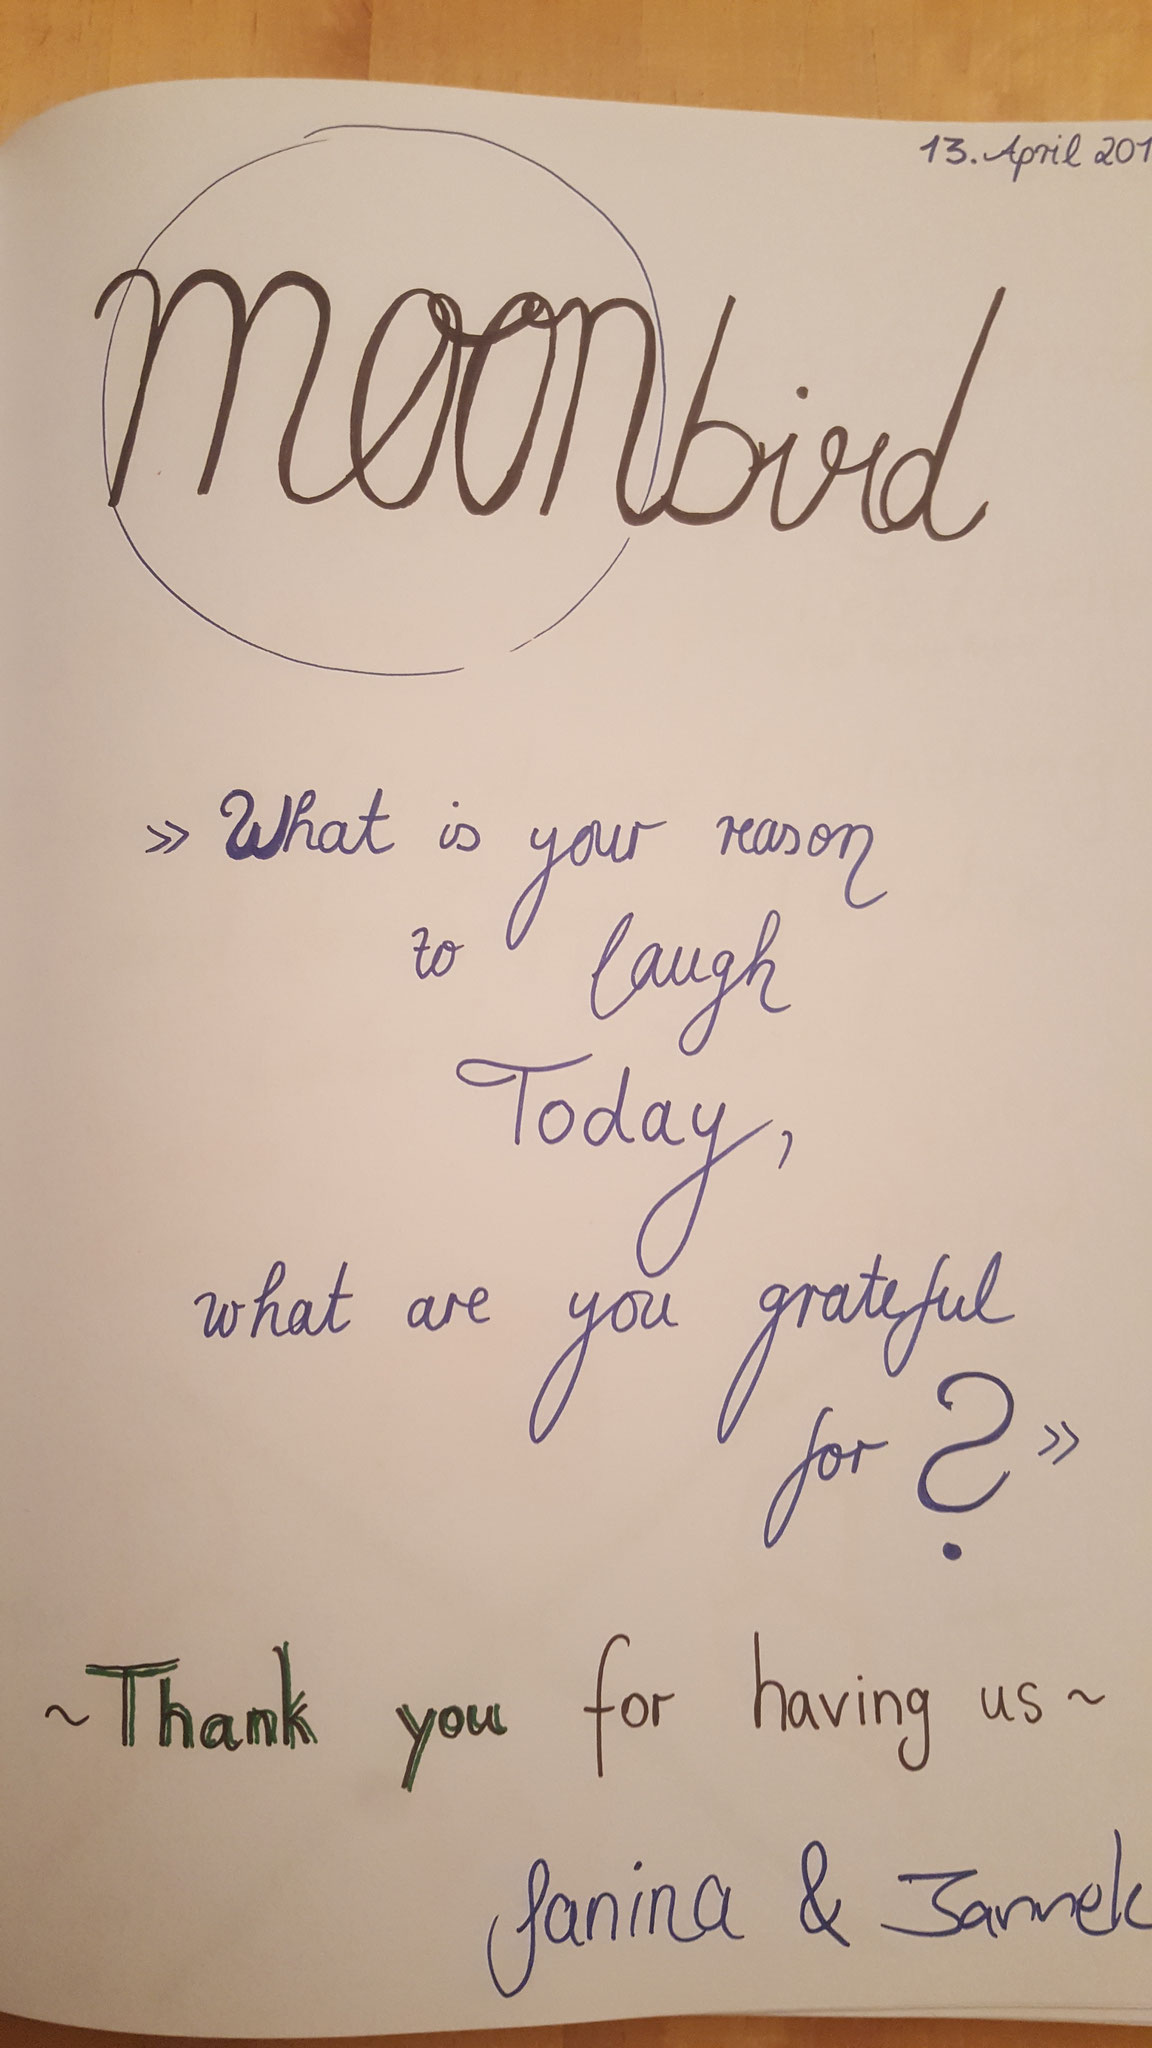 13. April 201
moonbird
» What is your reason
to laugh
Today,
what are you grateful
for ? »
~ Thank you for having us ~
Janina & Jannek